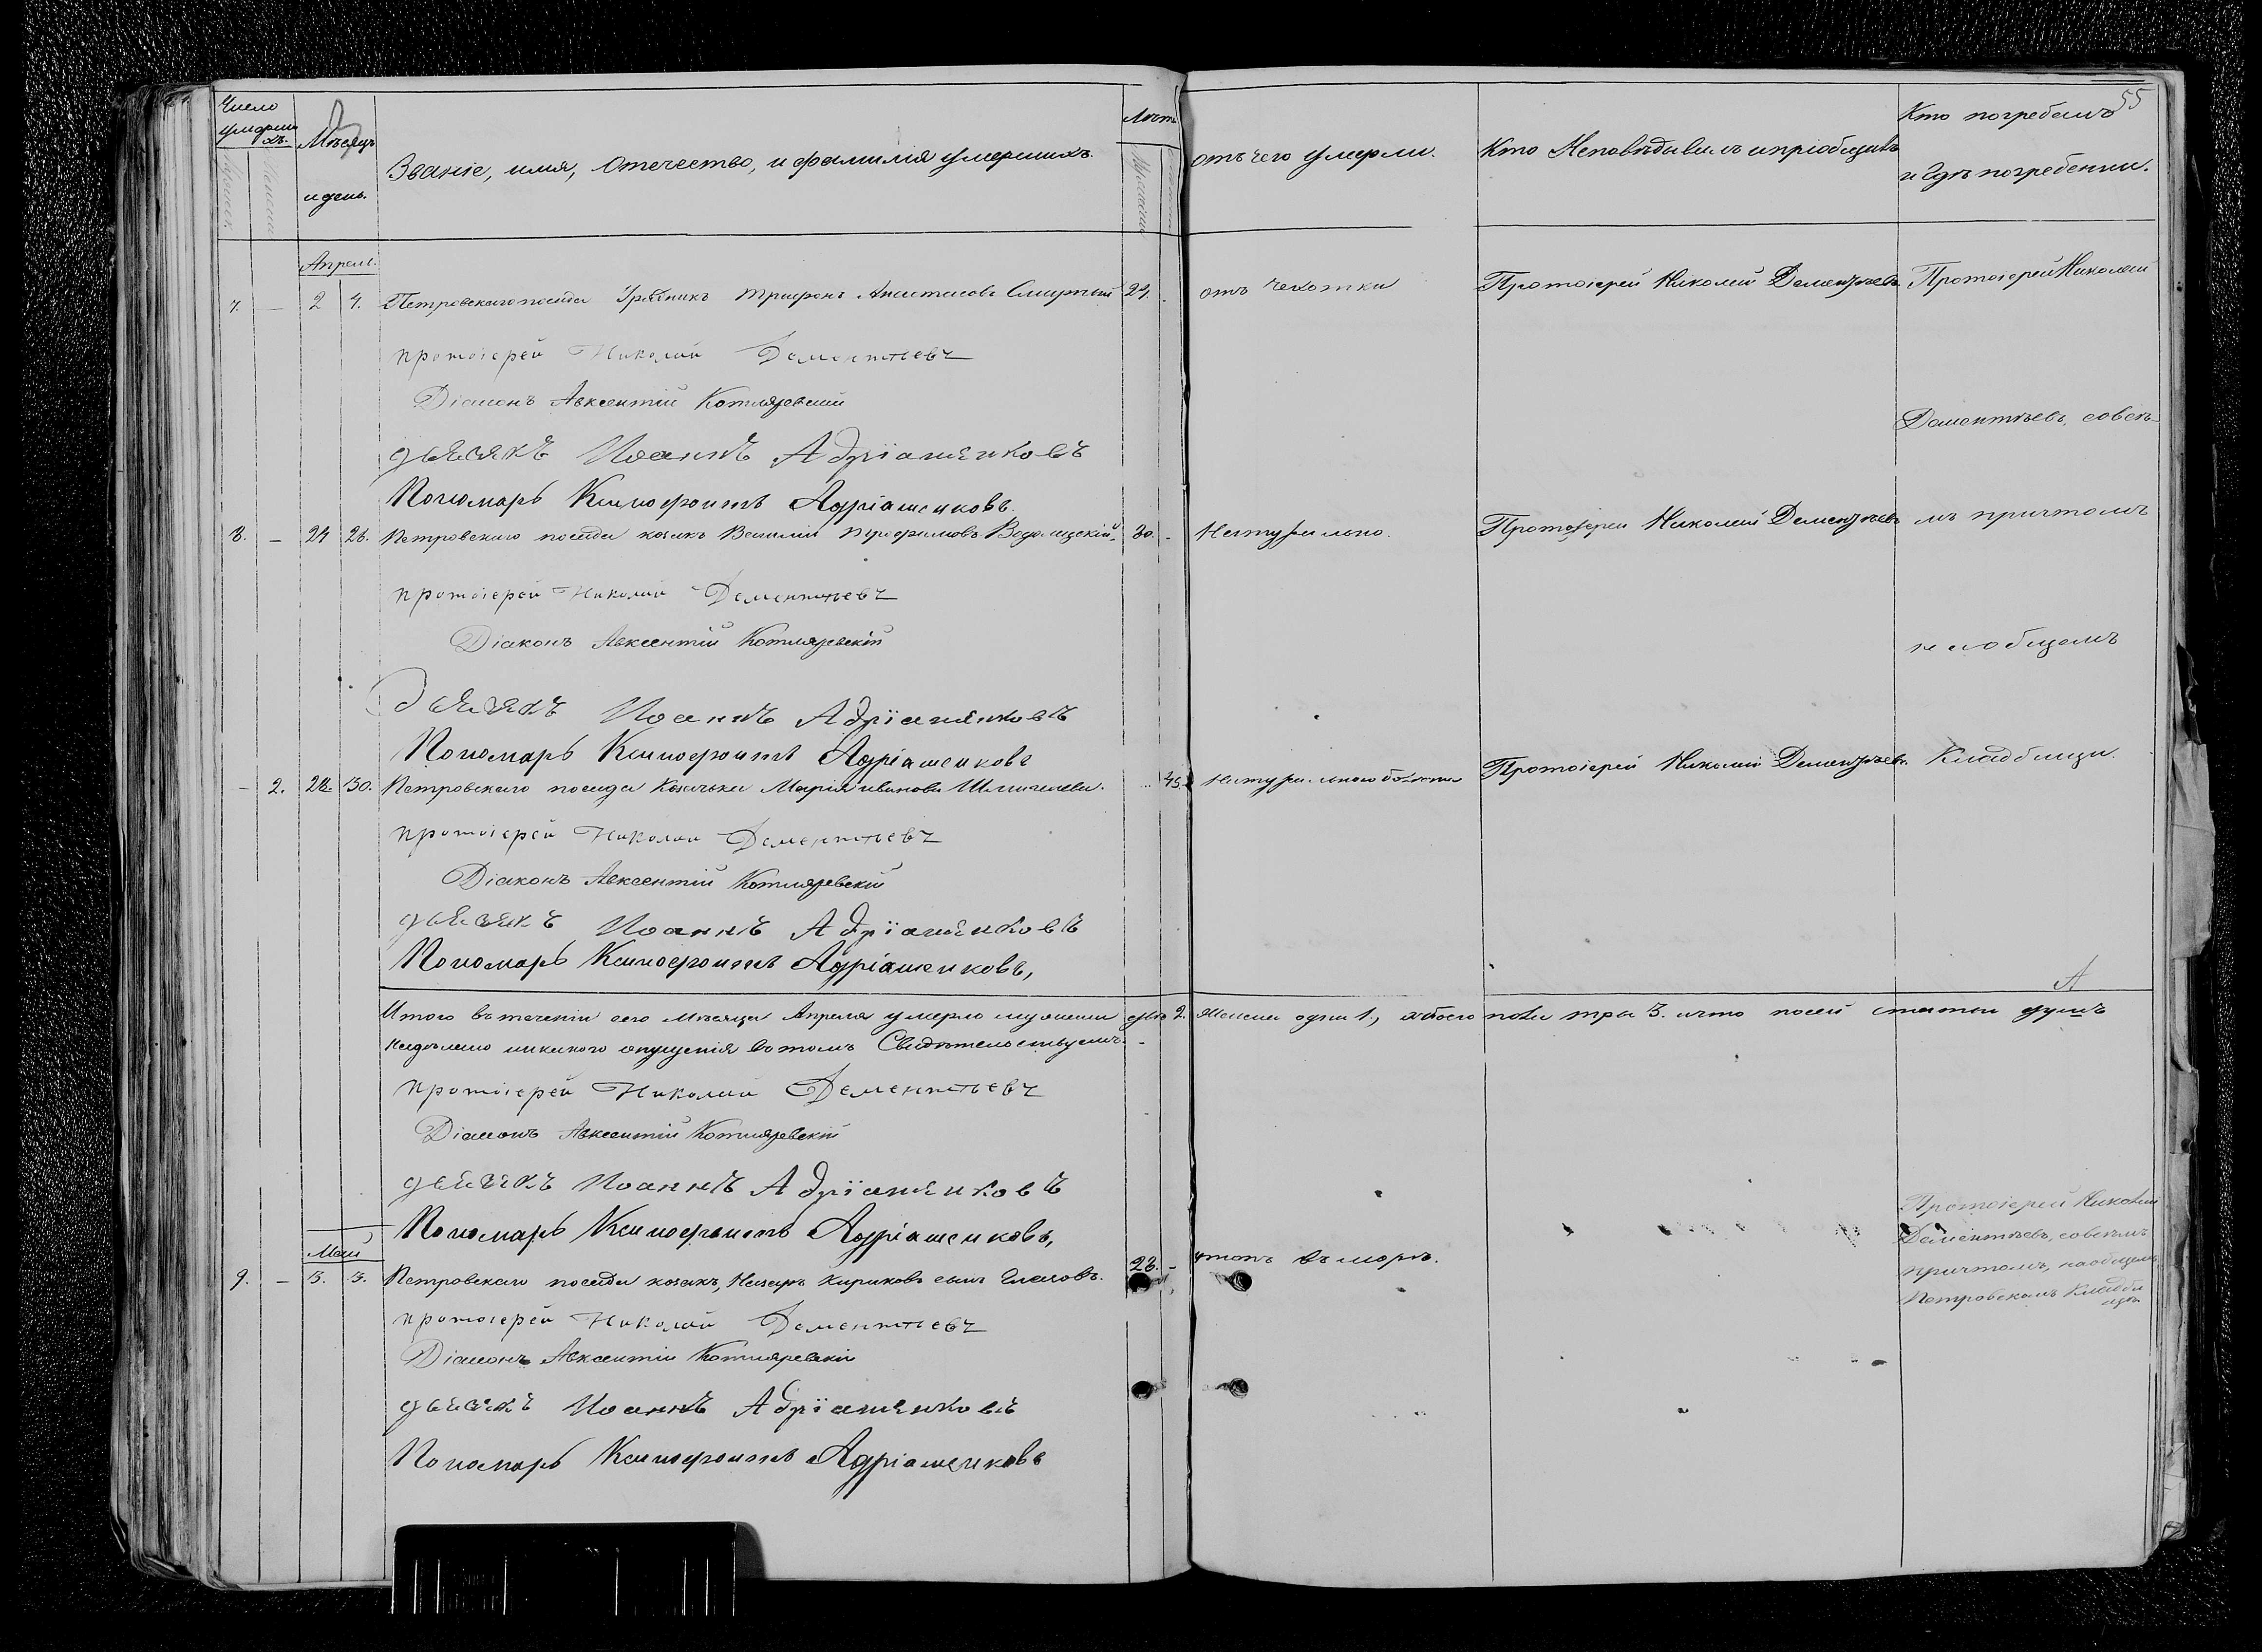 55
Число умершихъ.
Мѣсяцъ и день.
Званіе, имя, отечество, и фамилія умершихъ.
Лѣта
отъ чего умерли.
Кто Исповѣдывалъ и пріобщалъ
Кто погребалъ и гдѣ погребены.
Апрель.
7. — 2 4. Петровскаго посада Трифонъ 29. отъ чехотки Протоіерей Николай Дементьевъ Протоіерей Николай
протоіерей Николай Дементьевъ
Діаконъ Авксентій Котляревскій
Дементьевъ, совсѣ
дьячакъ Иоаннъ Адріашенковъ
Пономарь Ксенофонтъ Адріашенковъ.
8. — 24 26. Петровскаго посада козакъ Василій 30. Натурально. Протоіерей Николай Дементьевъ мъ причтомъ
протоіерей Николай Дементьевъ
Діаконъ Авксентій Котляревскій
на общемъ
дьячакъ Иоаннъ Адріашенковъ
Пономарь Ксенофонтъ Адріашенковъ
— 2. 28. 30. Петровскаго посада Козачка Марія иванова 45. Протоіерей Николай Дементьевъ. Кладбищи.
протоіерей Николай Дементьевъ
Діаконъ Авксентій Котляревскій
дьячакъ Иоаннъ Адріашенковъ
Пономарь Ксенофонтъ Адріашенковъ,
Итого въ теченіи сего Мѣсяца Апреля умерло мужеска два 2. женска одна 1, обоего пола три 3. и что посей статьи
никакого опущенія вотомъ Свидѣтельствуемъ.
протоіерей Николай Дементьевъ
Діаконъ Авксентій Котляревскій
дьячакъ Иоаннъ Адріашенковъ
Пономарь Ксенофонтъ Адріашенковъ,
Маій
9. — 3. 3. Петровскаго посада козакъ, Назаръ Кириковъ сынъ 28. — утопъ въ морѣ.
Протоіерей Николай
Дементьевъ, совсѣмъ
причтомъ, наобщемъ
Петровскомъ Кладби
щѣ
протоіерей Николай Дементьевъ
Діаконъ Авксентій Котляревскій
дьячакъ Иоаннъ Адріашенковъ
Пономарь Ксенофонтъ Адріашенковъ